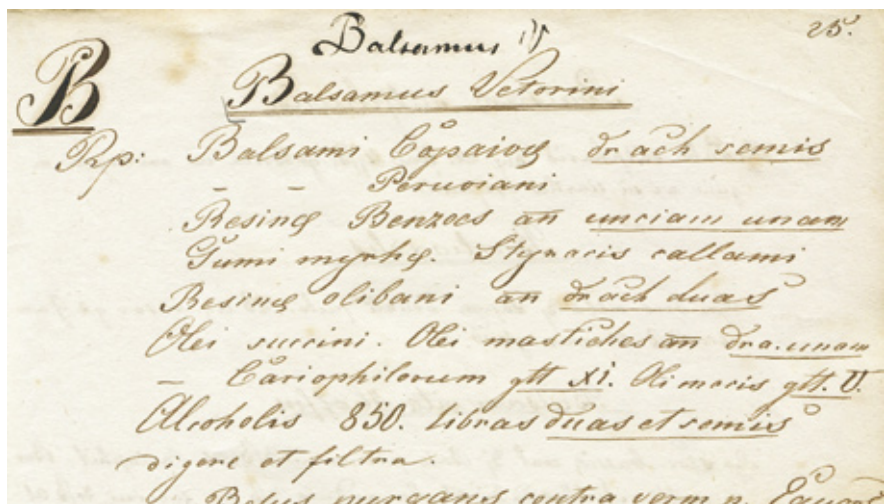 25.
Balsamus
B
Balsamus Vetorini
Rp: Balsami Copaivę drach semis
– – Peruviani
Resinę Benzoes an unciam unam
Gumi myrhę. Styracis callami
Resinę olibani an drach duas
Olei succini. Olei mastiches an dra. unam
– Cariophilorum gtt XI. Oli macis gtt. V.
Alcoholis 850. libras duas et semis
digere et filtra.
Bolus purgans contra verm.